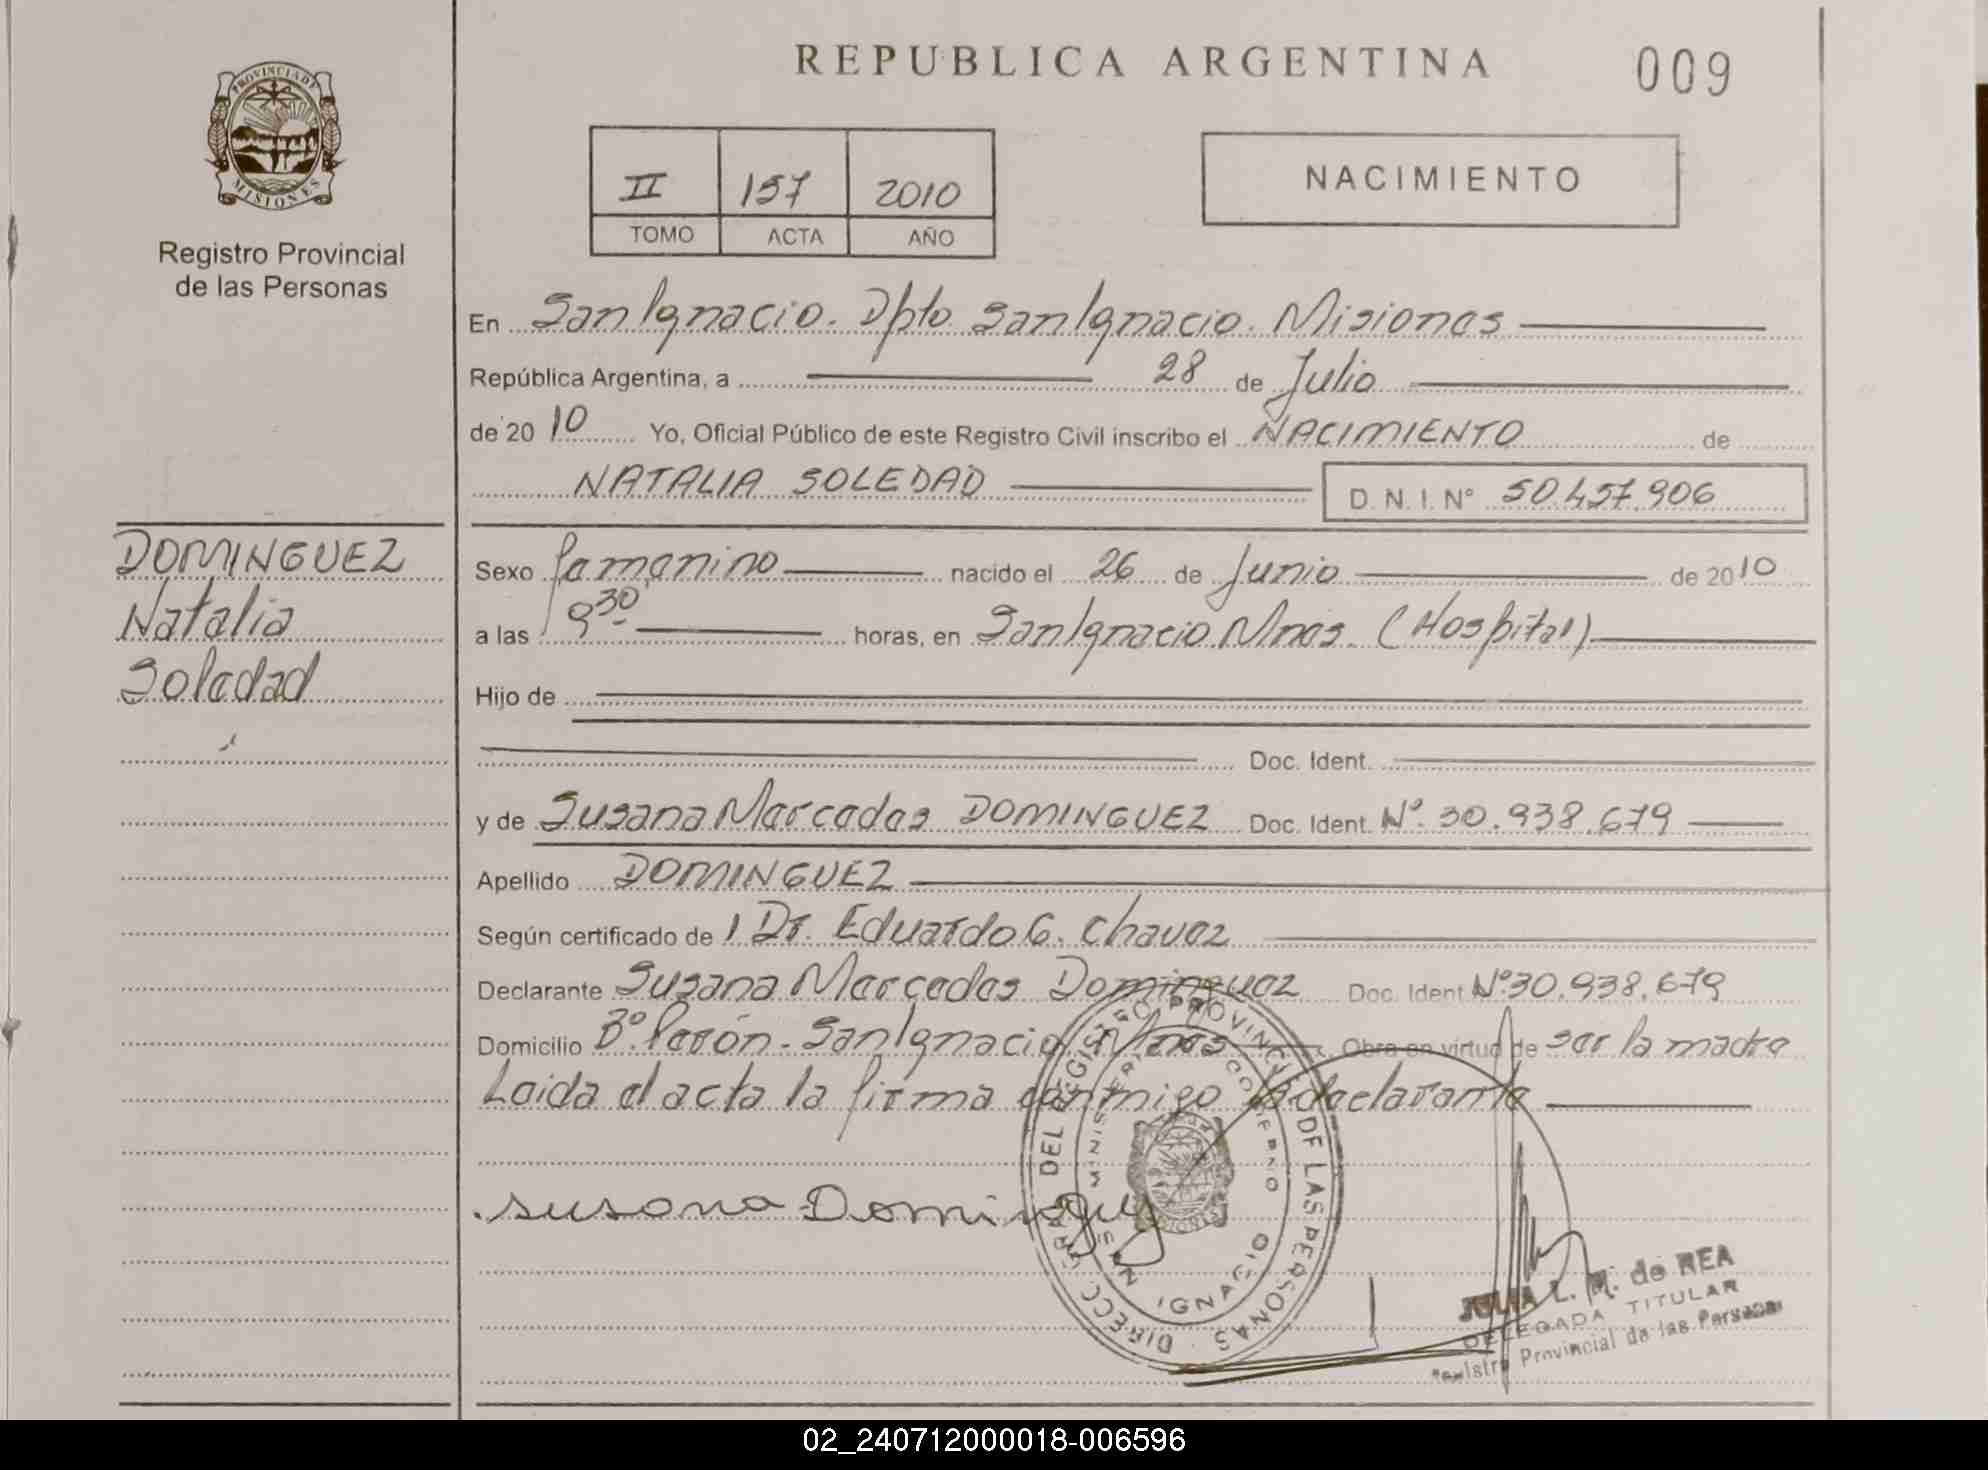 REPUBLICA ARGENTINA
009
PROVINCIA DE
MISIONES
Registro Provincial
de las Personas
II 157 2010
TOMO ACTA AÑO
NACIMIENTO
En San Ignacio. Dpto San Ignacio. Misiones
República Argentina, a 28 de Julio
de 2010 Yo, Oficial Público de este Registro Civil inscribo el NACIMIENTO de
NATALIA SOLEDAD D.N.I. Nº 50.457.906
DOMINGUEZ
Natalia
Soledad
Sexo femenino nacido el 26 de Junio de 2010
a las 9 30 horas, en San Ignacio. Mnes. (Hospital)
Hijo de
Doc. Ident.
y de Susana Mercedes DOMINGUEZ Doc. Ident. Nº. 30.938.679
Apellido DOMINGUEZ
Según certificado de 1 Dr. Eduardo G. Chavez
Declarante Susana Mercedes Dominguez Doc. Ident Nº 30.938.679
Domicilio Bº. Perón - San Ignacio Mnes Obra en virtud de ser la madre
Leida el acta la firma conmigo la declarante
Susana Dominguez
DIRECC. GRAL. DEL REGISTRO PROVINCIAL DE LAS PERSONAS
MINISTERIO GOBIERNO
SAN IGNACIO
JULIA L. M. de REA
DELEGADA TITULAR
Registro Provincial de las Personas
02_240712000018-006596